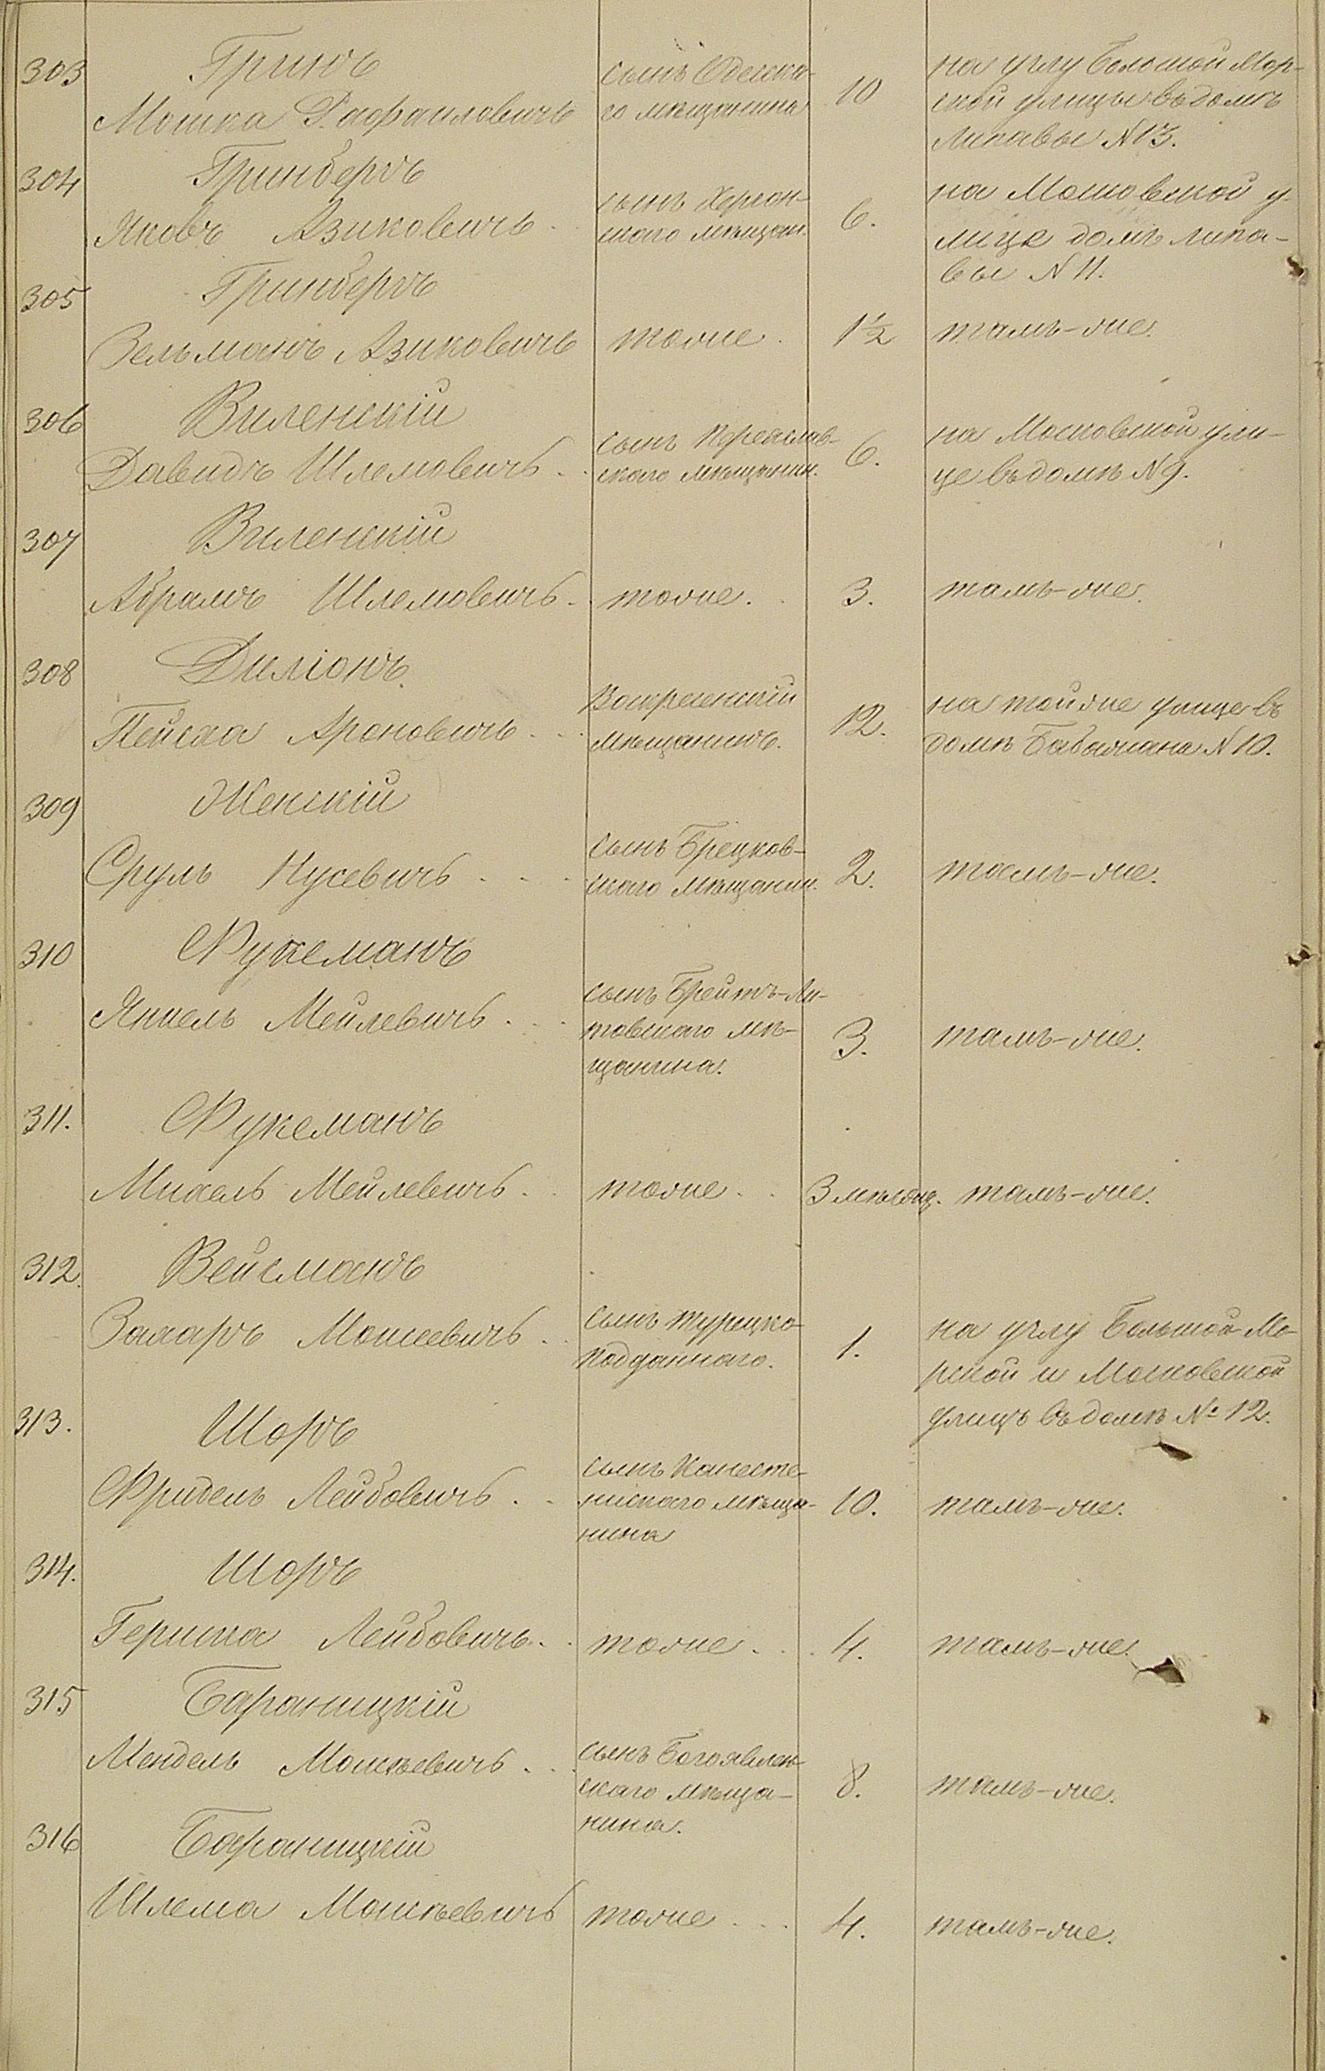 303
Гринъ
Мошка Рафаиловичъ
сынъ Одесска-
го мѣщанина
10
на углу Большой Мор-
ской улицы въ домѣ
Липавы N 13.
304
Гринбергъ
Яковъ Азиковичъ
сынъ Херсон-
скаго мѣщан.
6.
на Московской у-
лицѣ домъ Липа-
вы N 11.
305
Гринбергъ
Зельманъ Азиковичъ
тоже.
1½
тамъ-же.
306
Виленскій
Давидъ Шлемовичъ
сынъ Переяслав-
скаго мѣщанин.
6.
на Московской ули-
це въ домѣ N 9.
307
Виленскій
Абрамъ Шлемовичъ
тоже.
3.
тамъ-же.
308
Диліонъ
Пейсха Ароновичъ
Воскресенскій
мѣщанинъ.
12.
на той же улице въ
домѣ N 10.
309
Женскій
Сруль Нусевичъ
сынъ
скаго мѣщанин.
2.
тамъ-же.
310
Фукеманъ
Янкель Мейлевичъ
сынъ Ли-
товскаго мѣ-
щанина.
3.
тамъ-же.
311.
Фукеманъ
Михель Мейлевичъ
тоже
3 мѣсяц.
тамъ-же.
312.
Вейсманъ
Захаръ Моисеевичъ
сынъ турецко-
подданнаго.
1.
на углу Большой Мо-
рской и Московской
улицъ въ домѣ № 12.
313.
Шоръ
Фридель Лейбовичъ
сынъ
мѣща-
нина
10.
тамъ-же.
314.
Шоръ
Гершка Лейбовичъ
тоже
4.
тамъ-же.
315
Бараницкій
Мендель Мошкевичъ
сынъ Богоявлен-
скаго мѣща-
нина.
8.
тамъ-же.
316
Бараницкій
Шлема Мошкевичъ
тоже
4.
тамъ-же.